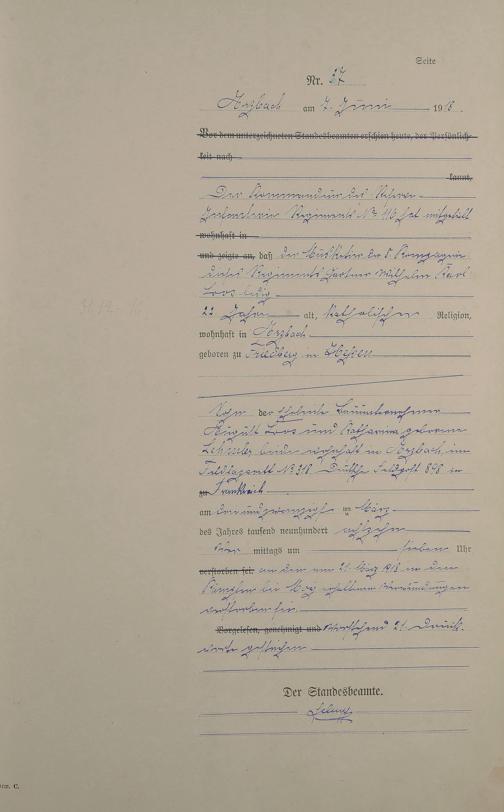 Seite
Nr. 27
Arzbach am 7. Juni 1918.
Vor dem unterzeichneten Standesbeamten erschien heute, der Persönlich-
keit nach
kannt,
Der Kommandeur des Reserve-
Infanterie Regiments No 116 hat mitgeteilt
wohnhaft in
und zeigte an, daß der Musketier der 5. Kompagnie
dieses Regiments, Gärtner Wilhelm Karl
Loos ledig
22 Jahre alt, katholischer Religion,
wohnhaft in Arzbach
geboren zu Friedberg in Hessen
Sohn der Eheleute Bauunternehmer
August Loos und Katharina geborene
beide wohnhaft in Arzbach, im
Feldlazarett No 318 Deutsche Feldpost 898 in
zu Frankreich
am dreiundzwanzigsten März
des Jahres tausend neunhundert achtzehn
mittags um sieben Uhr
verstorben sei an den am 21. März 1918 in den
Kämpfen bei erhaltenen Verwundungen
verstorben sei.
Vorgelesen, genehmigt und Vorstehend 21 Druck-
worte gestrichen.
Der Standesbeamte.
C.